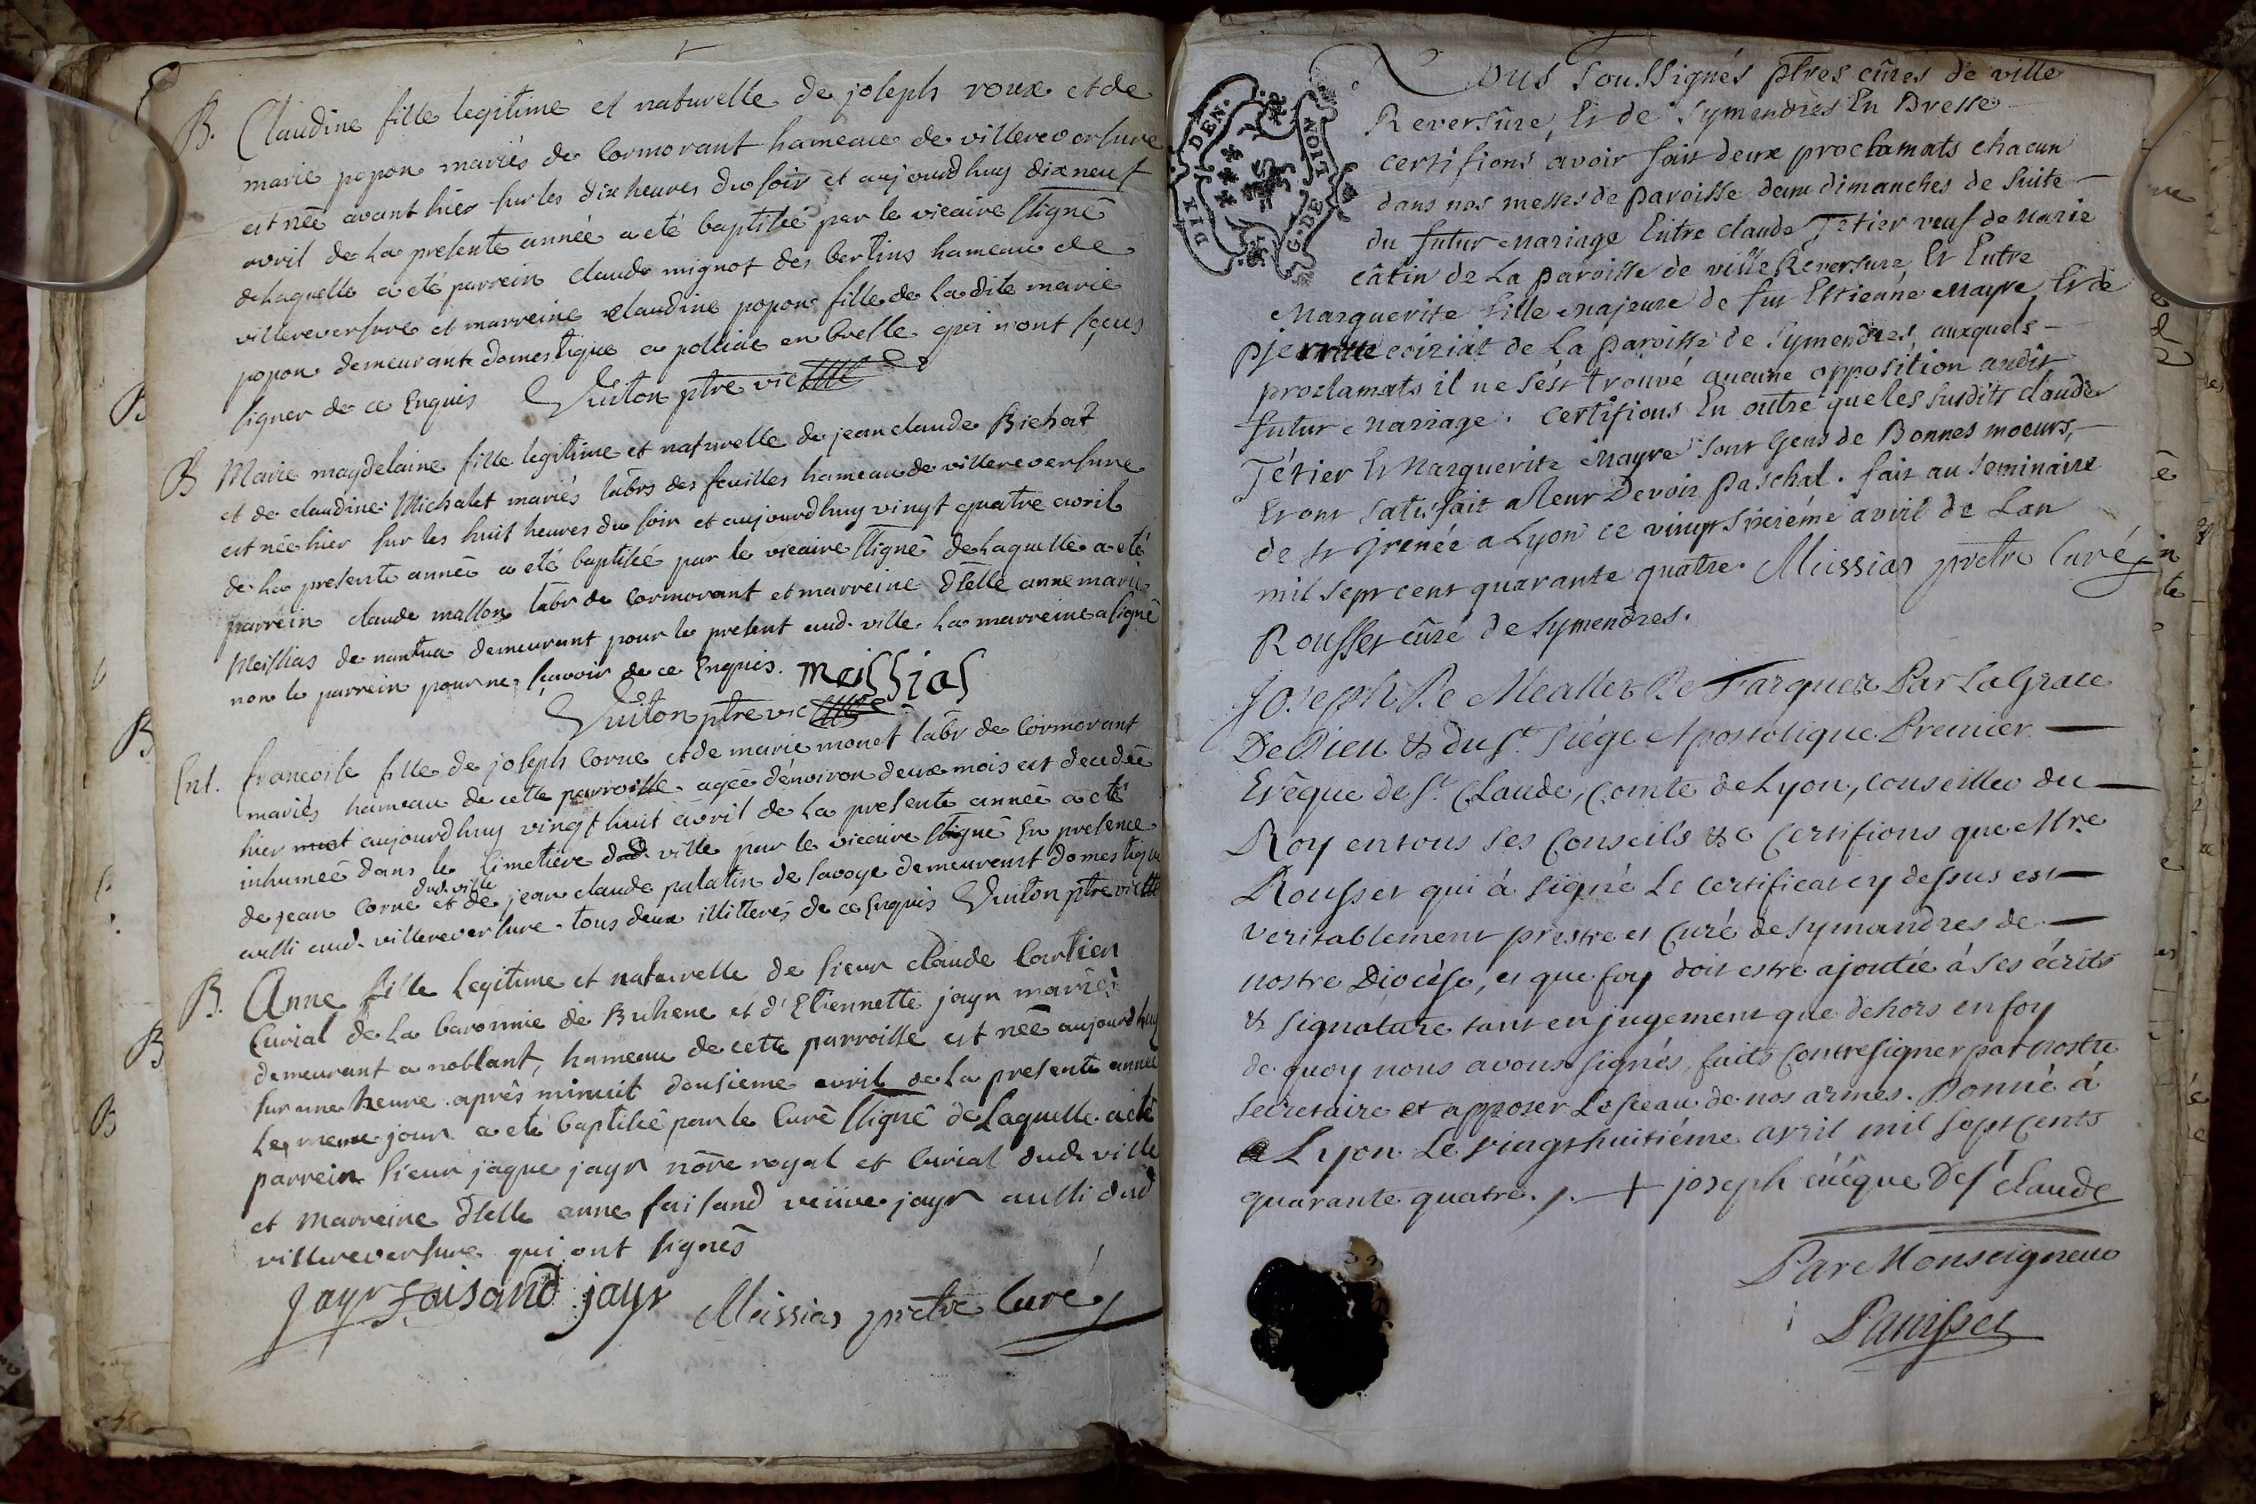 B. Claudine fille legitime et naturelle de joseph roux et de
marie popon mariés de Cormorant hameau de villereversure
est née avant hier sur les dix heures du soir et aujourdhuy dixneuf
avril de la presente année a eté baptisée par le vicaire ssigné
de laquelle a eté parrein claude mignot des bertins hameau de
villereversure et marreine claudine popon fille de la dite marie
popon demeurante domestique a polliat en bresse qui nont sçeus
signer de ce Enquis Vuiton ptre vic
B Marie magdelaine fille legitime et naturelle de jean claude Bichat
et de claudine Michalet mariés labrs des feuilles hameau de villereversure
est née hier sur les huit heures du soir et aujourdhuy vingt quatre avril
de la presente année a eté baptisée par le vicaire ssigné de laquelle a eté
parrein claude mallon labr de Cormorant et marreine dselle anne marie
Meissias de nantua demeurant pour le present aud. ville. la marreine a signé
non le parrein pour ne sçavoir de ce Enquis. meissias
Vuiton ptre vic
Ent. francoise fille de joseph Corne et de marie monet labr de Cormorant
mariés hameau de cette parroisse agée d'environ deux mois est decedée
hier et aujourdhuy vingt huit avril de la presente année a eté
inhumée dans le Cimetiere dud. ville par le vicaire ssigné En presence
dud. ville
de jean Corne et de jean claude palatin de savoye demeurant domestique
aussi aud. villereversure. tous deux illitterés de ce Enquis Vuiton ptre vic
B. Anne fille legitime et naturelle de sieur claude Cartien
Curial de la baronnie de Buhene et d'Etiennette jayr mariés
demeurant a noblant, hameau de cette parroisse est née aujourdhuy
sur une heure après minuit dousieme avril de la presente année
Le meme jour a eté baptisée par le Curé ssigné de Laquelle a eté
parrein sieur jaque jayr nore royal et Curial dud. ville
et Marreine dselle anne faisand veuve jayr aussi dud
villereversure qui ont signés
Jayr faisand jayr Meissias pretre Curé
DIX DEN. G. DE
Nous soussignés ptres cûres de ville
Reversûre, Et de Symendres En Bresse
certifions avoir fait deux proclamats chacun
dans nos messes de paroisse deux dimanches de suite
du futur mariage Entre claude Tétier veuf de marie
câtin de la paroisse de ville Reversure, Et Entre
Marguerite fille majeure de fut Ettienne Mayre, Et de
pierrette coiziat de La paroisse de Symendres, auxquels
proclamats il ne s'est trouvé aucune opposition audit
futur mariage. certifions En outre que les susdits claude
Tétier Et Marguerite Mayre sont gens de Bonnes moeurs,
Et ont satisfait a leur Devoir paschal. fait au seminaire
de st jrenée a Lyon ce vingt sixiéme avril de Lan
mil sept cent quarante quatre. Meissias pretre Curé
Rousset cûré de symendres.
Joseph De Meallet De Fargues Par La Grace
De Dieu & du St. Siége Apostolique Premier
Evêque de St. Claude, Comte de Lyon, conseiller du
Roy en tous ses Conseils &c Certifions que Mre
Rousset qui à signé Le Certificat cy dessus est
veritablement prestre et Curé de symandres de
nostre Diocèse, et que foy doit estre ajoutée à ses écrits
& signature tant en jugement que dehors en foy
de quoy nous avons signés, faits Contresigner par nostre
secretaire et apposer Le sceau de nos armes. Donné à
a Lyon Le vingt huitiéme avril mil sept Cents
quarante quatre. + joseph evêque De st Claude
Par Monseigneur